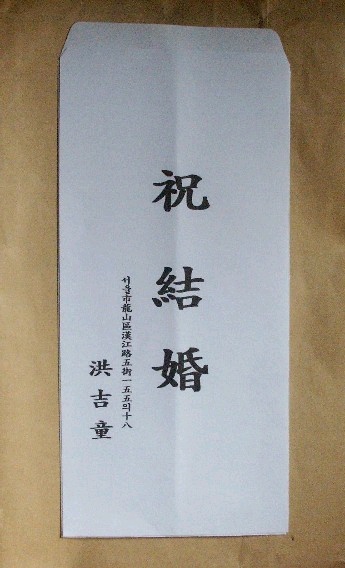 祝結婚
서울市龍山區漢江路五街一五五의十八
洪吉童